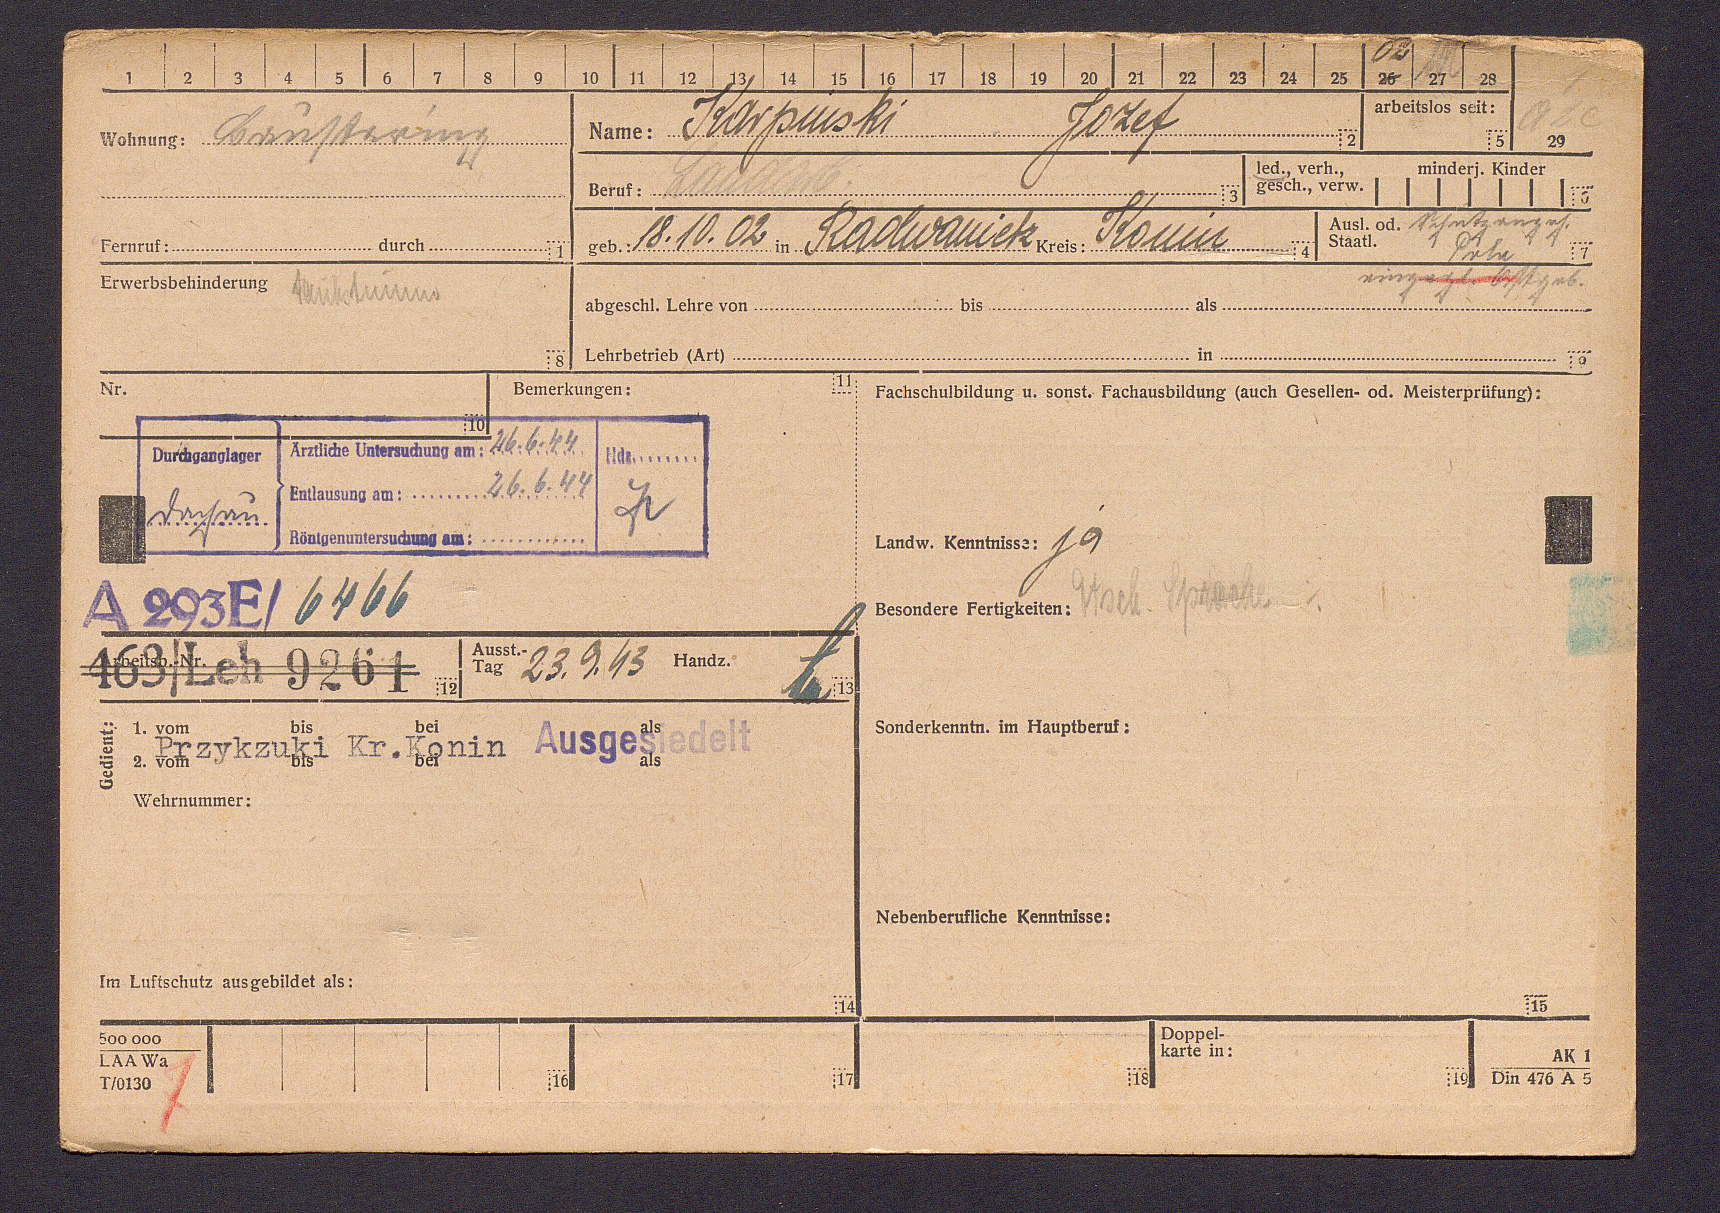 02
1 2 3 4 5 6 7 8 9 10 11 12 13 14 15 16 17 18 19 20 21 22 23 24 25 26 27 28
Wohnung:
Name: Karpinski Jozef 2
arbeitslos seit: 5
29
Beruf: 3
led., verh., gesch., verw.
minderj. Kinder 6
Fernruf: durch 1
geb.: 18.10.02 in Radwaniek Kreis: Konin 4
Ausl. od. Staatl. Schutzangeh. Pole 7
eingegl. Ostgeb.
Erwerbsbehinderung
8
abgeschl. Lehre von bis als
Lehrbetrieb (Art) in 9
Nr. 10
Bemerkungen: 11
Durchganglager Dachau
Ärztliche Untersuchung am: 26.6.44
Entlausung am: 26.6.44
Röntgenuntersuchung am:
Hdz.
A 293E/ 6466
Arbeitsb.-Nr. 463/Leh 9261 12
Ausst.-Tag 23.9.43 Handz. 13
Gedient:
1. vom bis bei als
Przykzuki Kr.Konin Ausgesiedelt
2. vom bis bei als
Wehrnummer:
Im Luftschutz ausgebildet als:
14
Fachschulbildung u. sonst. Fachausbildung (auch Gesellen- od. Meisterprüfung):
Landw. Kenntnisse: ja
Besondere Fertigkeiten: Dtsch. Sprache
Sonderkenntn. im Hauptberuf:
Nebenberufliche Kenntnisse:
15
500 000
LAA Wa
T/0130
7
16 17 18
Doppelkarte in: 19
AK 1
Din 476 A 5